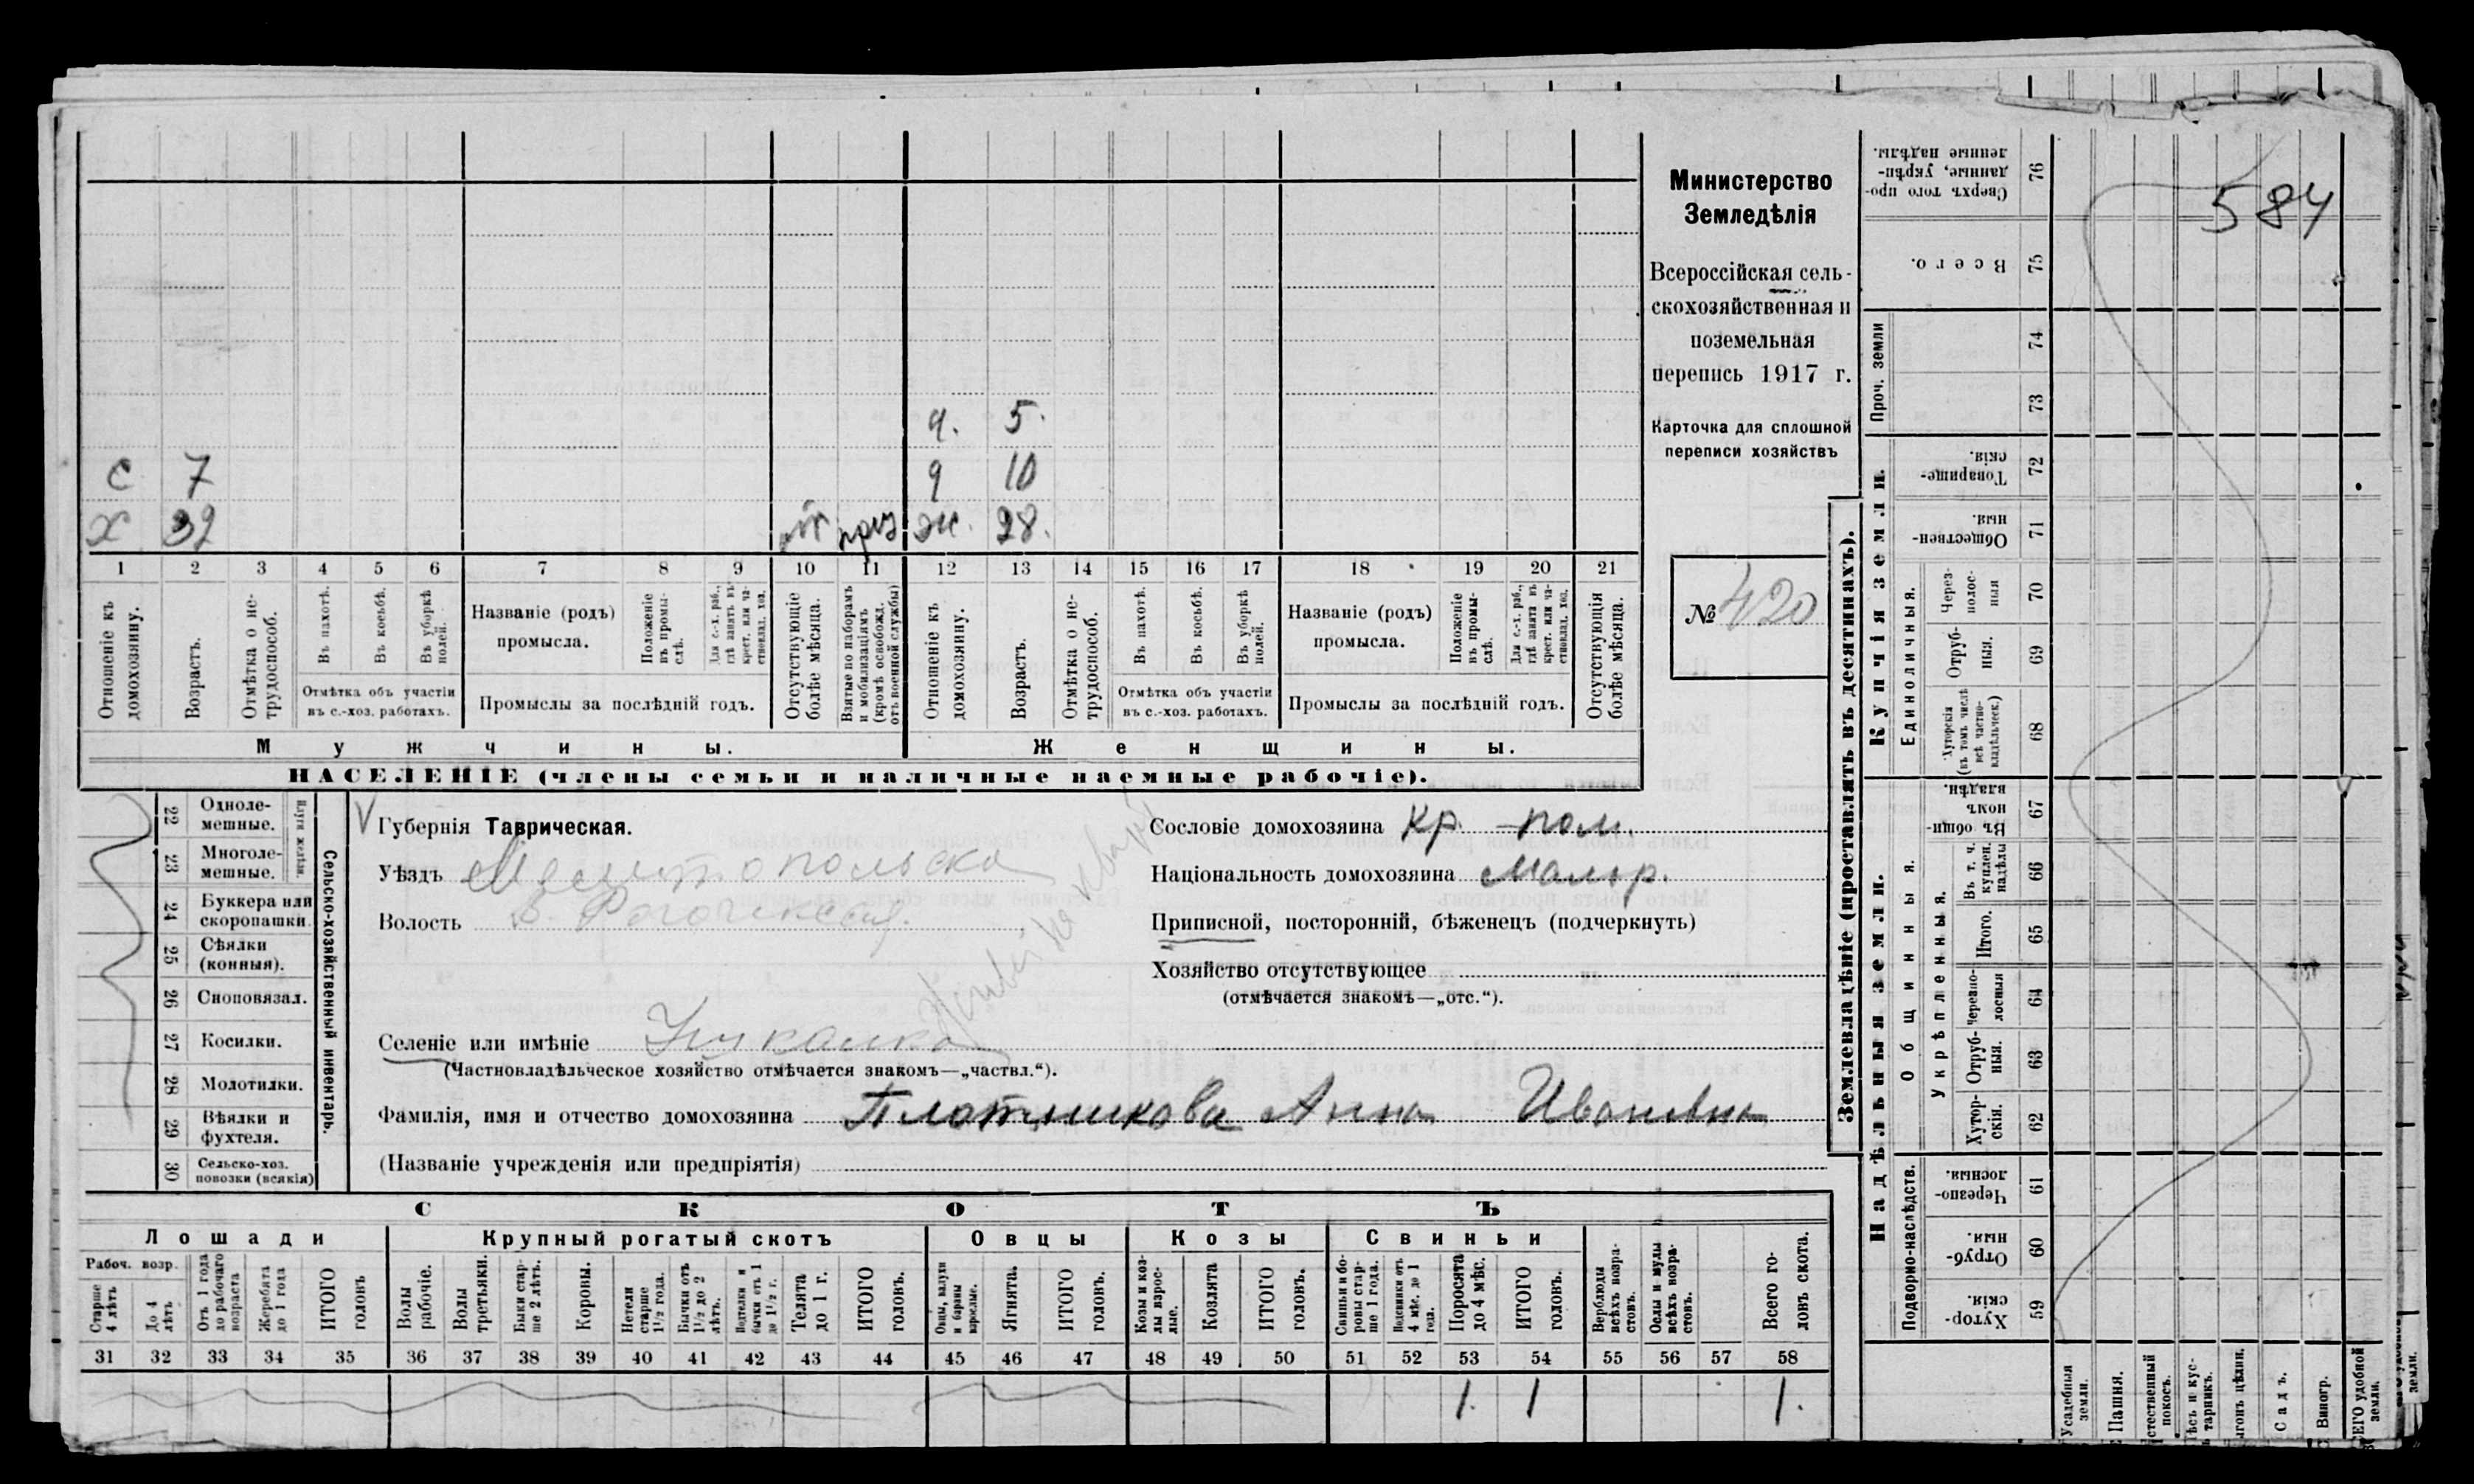 584
Министерство
Земледѣлія
Всероссійская сель-
скохозяйственная и
поземельная
перепись 1917 г.
Карточка для сплошной
переписи хозяйствъ
№ 420
ч. 5.
с 7 ч 10
х 32 от приз ж. 28.
1 2 3 4 5 6 7 8 9 10 11 12 13 14 15 16 17 18 19 20 21
Отношеніе къ домохозяину.
Возрастъ.
Отмѣтка о не-трудоспособ.
Въ пахотѣ.
Въ косьбѣ.
Въ уборкѣ полей.
Отмѣтка объ участіи
въ с.-хоз. работахъ.
Названіе (родъ)
промысла.
Положеніе въ промы-слѣ.
Для с.-х. раб., гдѣ занятъ въ крест. или ча-стновлад. хоз.
Промыслы за послѣдній годъ.
Отсутствующіе болѣе мѣсяца.
Взятые по наборамъ и мобилизаціямъ (кромѣ освобожд. отъ военной службы)
Отношеніе къ домохозяину.
Возрастъ.
Отмѣтка о не-трудоспособ.
Въ пахотѣ.
Въ косьбѣ.
Въ уборкѣ полей.
Отмѣтка объ участіи
въ с.-хоз. работахъ.
Названіе (родъ)
промысла.
Положеніе въ промы-слѣ.
Для с.-х. раб., гдѣ занятъ въ крест. или ча-стновлад. хоз.
Промыслы за послѣдній годъ.
Отсутствующія болѣе мѣсяца.
Мужчины.
Женщины.
НАСЕЛЕНІЕ (члены семьи и наличные наемные рабочіе).
Сельско-хозяйственный инвентарь.
Плуги желѣзн.
22 Одноле-мешные.
23 Многоле-мешные.
24 Буккера или скоропашки.
25 Сѣялки (конныя).
26 Сноповязал.
27 Косилки.
28 Молотилки.
29 Вѣялки и фухтеля.
30 Сельско-хоз. повозки (всякія)
Губернія Таврическая.
Уѣздъ Мелитопольска
Волость В. Рогачикская.
Селеніе или имѣніе
(Частновладѣльческое хозяйство отмѣчается знакомъ—„частвл.“).
Фамилія, имя и отчество домохозяина Плотникова Анна Ивановна
(Названіе учрежденія или предпріятія)
Сословіе домохозяина Кр. - пол.
Національность домохозяина Малор.
Приписной, посторонній, бѣженецъ (подчеркнуть)
Хозяйство отсутствующее
(отмѣчается знакомъ—„отс.“).
СКОТЪ
Лошади
Крупный рогатый скотъ
Овцы
Козы
Свиньи
Рабоч. возр.
Старше 4 лѣтъ
До 4 лѣтъ
Отъ 1 года до рабочаго возраста
Жеребята до 1 года
ИТОГО головъ
Волы рабочіе.
Волы третьяки.
Быки стар-ше 2 лѣтъ.
Коровы.
Нетели старше 1½ года.
Бычки отъ 1½ до 2 лѣтъ.
Подтелки и бычки отъ 1 до 1½ г.
Телята до 1 г.
ИТОГО головъ.
Овцы, валухи и бараны взрослые.
Ягнята.
ИТОГО головъ.
Козы и коз-лы взрос-лые.
Козлята
ИТОГО головъ.
Свиньи и бо-ровы стар-ше 1 года.
Подсвинки отъ 4 мѣс. до 1 года.
Поросята до 4 мѣс.
ИТОГО головъ.
Верблюды всѣхъ возра-стовъ.
Ослы и мулы всѣхъ возра-стовъ.
Всего го-ловъ скота.
31 32 33 34 35 36 37 38 39 40 41 42 43 44 45 46 47 48 49 50 51 52 53 54 55 56 57 58
1. 1 1.
Землевладѣніе (проставлять въ десятинахъ).
Купчія земли.
Надѣльныя земли.
Сверхъ того про-данные, укрѣп-ленные надѣлы. 76
Всего. 75
Проч. земли
74
73
Товарище-скія. 72
Обществен-ныя. 71
Единоличныя.
Через-полос-ныя 70
Отруб-ныя. 69
Хуторскія (въ томъ числѣ всѣ частно-владѣльческ.) 68
Общинныя.
Въ общин-номъ владѣн. 67
Укрѣпленныя.
Въ т. ч. куплен. надѣлы 66
Итого. 65
Черезпо-лосныя 64
Отруб-ныя. 63
Хутор-скія. 62
Подворно-наслѣдств.
Черезпо-лосныя. 61
Отруб-ныя. 60
Хутор-скія. 59
Усадебныя земли.
Пашня.
Садъ.
Виногр.